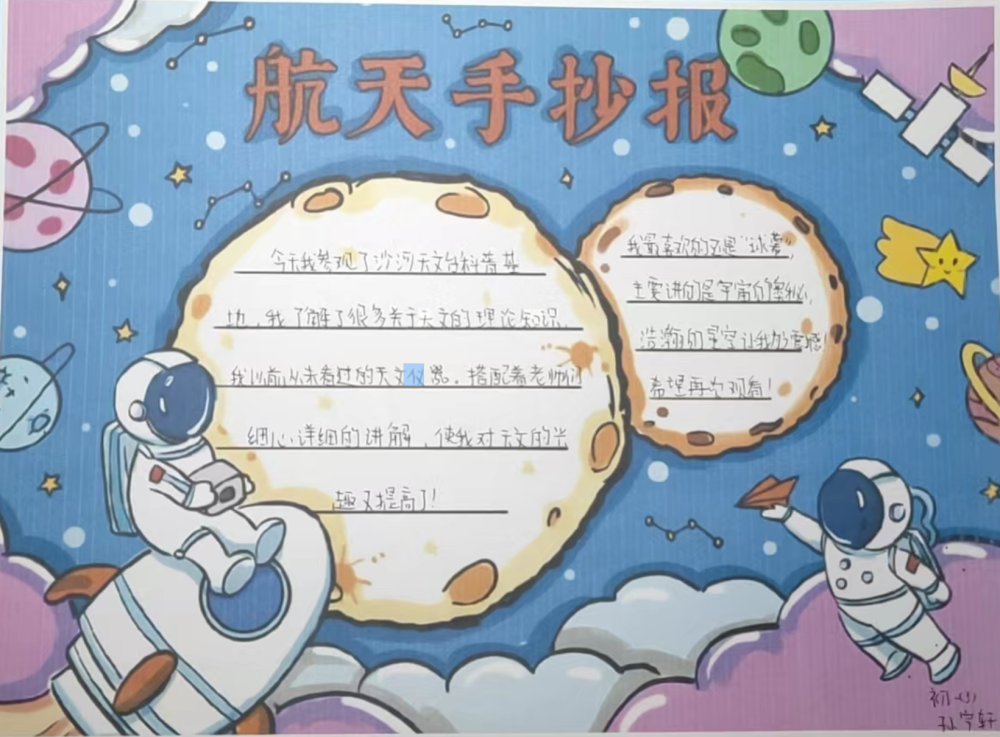 航天手抄报
今天我参观了沙河天文台科普基
地,我了解了很多关于天文的理论知识,
我以前从未看过的天文仪器。搭配着老师们
细心详细的讲解,使我对天文的兴
趣又提高了!
我最喜欢的还是“球幕”,
主要讲的是宇宙的奥秘,
浩瀚的星空让我
希望再次观看!
初一(3)
孙宇轩